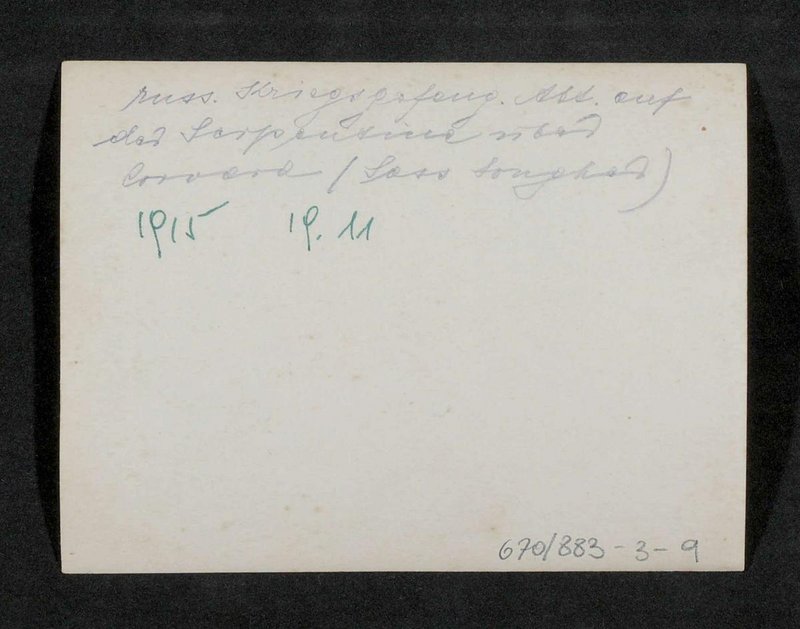 russ. Kriegsgefang. Abt. auf
der Serpentine über
Corvara (Sass Songher)
1915 19. 11
670/883-3-9